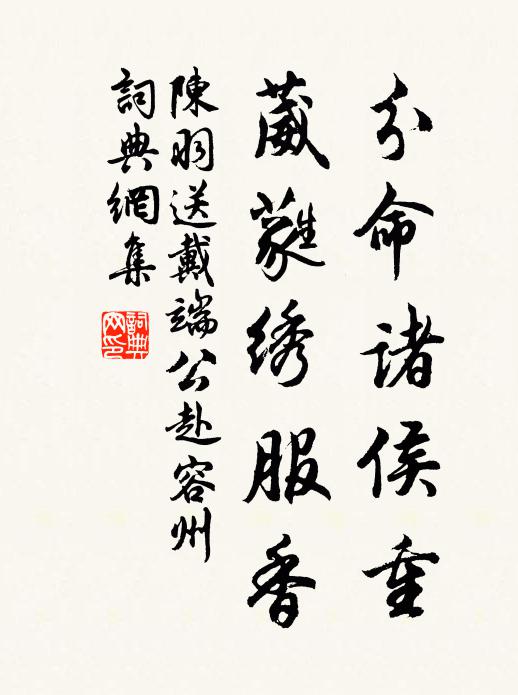 分命諸侯重
葳蕤绣服香
陳羽送戴端公赴容州
詞典網集
詞典網印